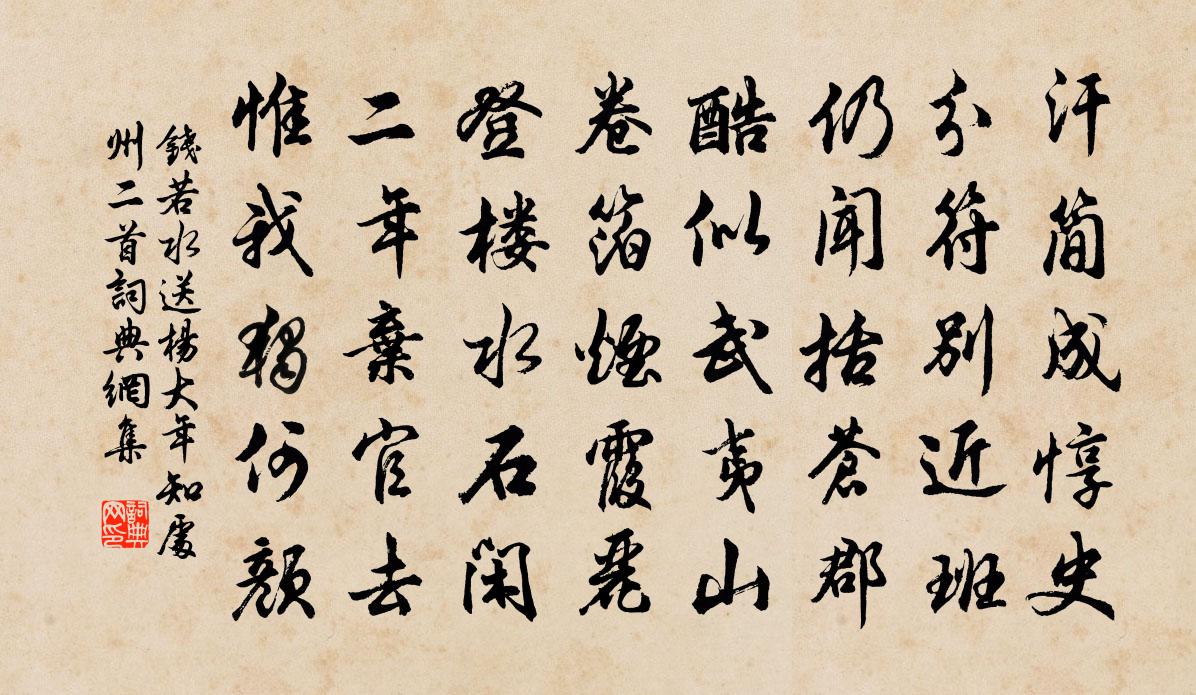 汗简成惇史
分符别近班
仍闻括苍郡
酷似武夷山
卷箔烟霞丽
登楼水石闲
二年弃官去
惟我独何颜
錢若水送楊大年知處
州二首詞典網集
詞典網印